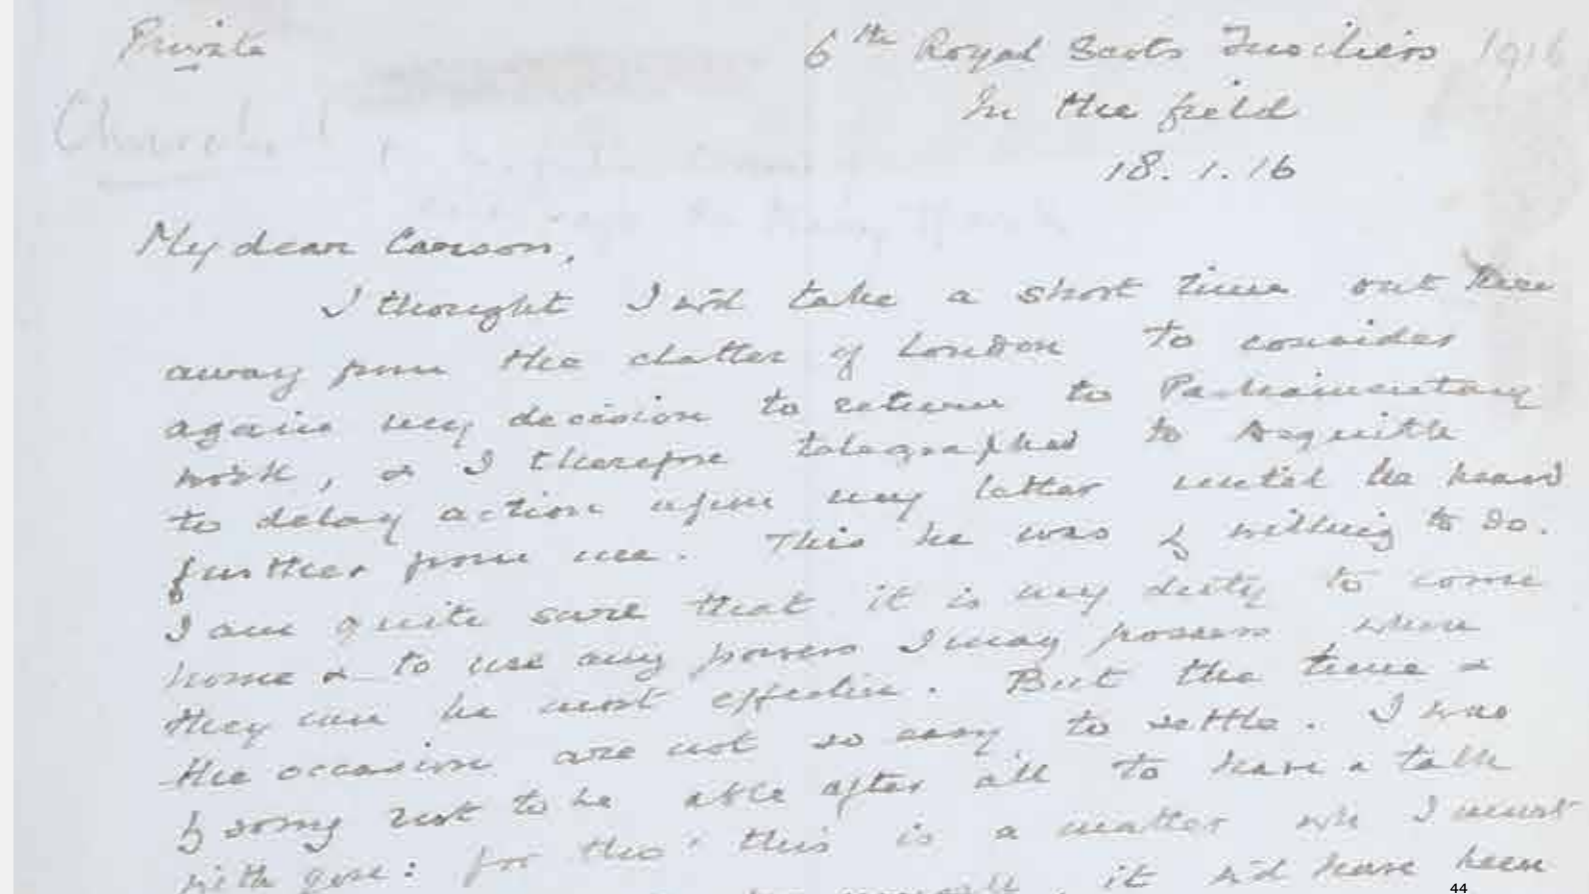 Private
6th Royal Scots Fusiliers 1916
In the field
18. 1. 16
My dear Carson,
I thought I wd take a short time out here
away from the chatter of London to consider
again my decision to return to Parliamentary
work, & I therefore telegraphed to Asquith
to delay action upon my letter until he heard
further from me. This he was willing to do.
I am quite sure that it is my duty to come
home & to use any powers I may possess where
they can be most effective. But the time &
the occasion are not so easy to settle. I was
sorry not to be able after all to have a talk
with you: for tho' this is a matter wh I must
it wd have been
44